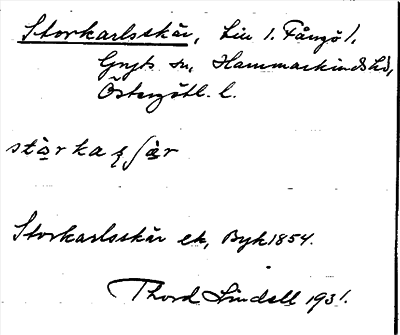 Storkarlsskär, Liu 1. Fångö 1,
Gryts sn, Hammarkinds hd,
Östergötl. l.
Storkarlsskär ek, Byk 1854.
Thord Lindell 1931.